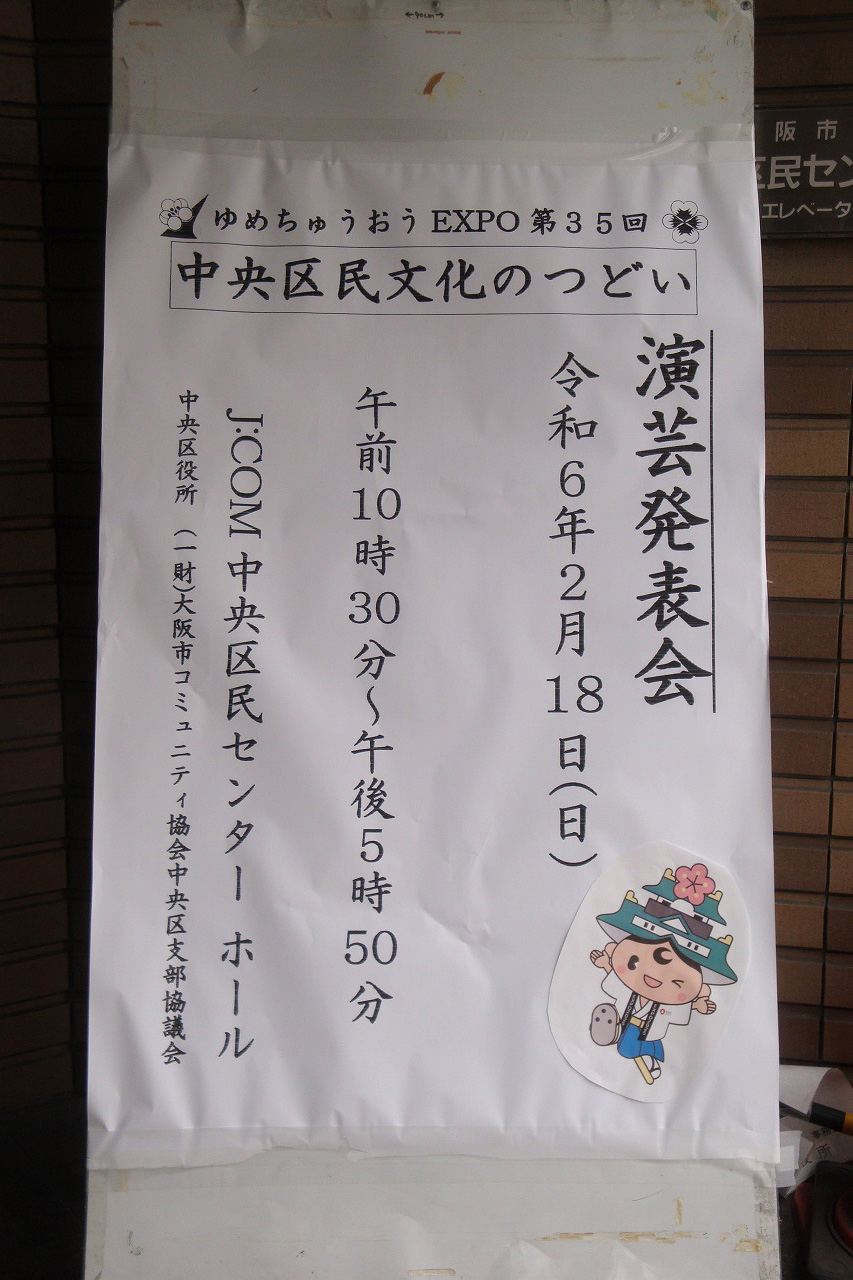 ゆめちゅうおうEXPO第35回
中央区民文化のつどい
演芸発表会
令和6年2月18日(日)
午前10時30分～午後5時50分
J:COM中央区民センター ホール
中央区役所 (一財)大阪市コミュニティ協会中央区支部協議会
阪市
区民セン
エレベータ